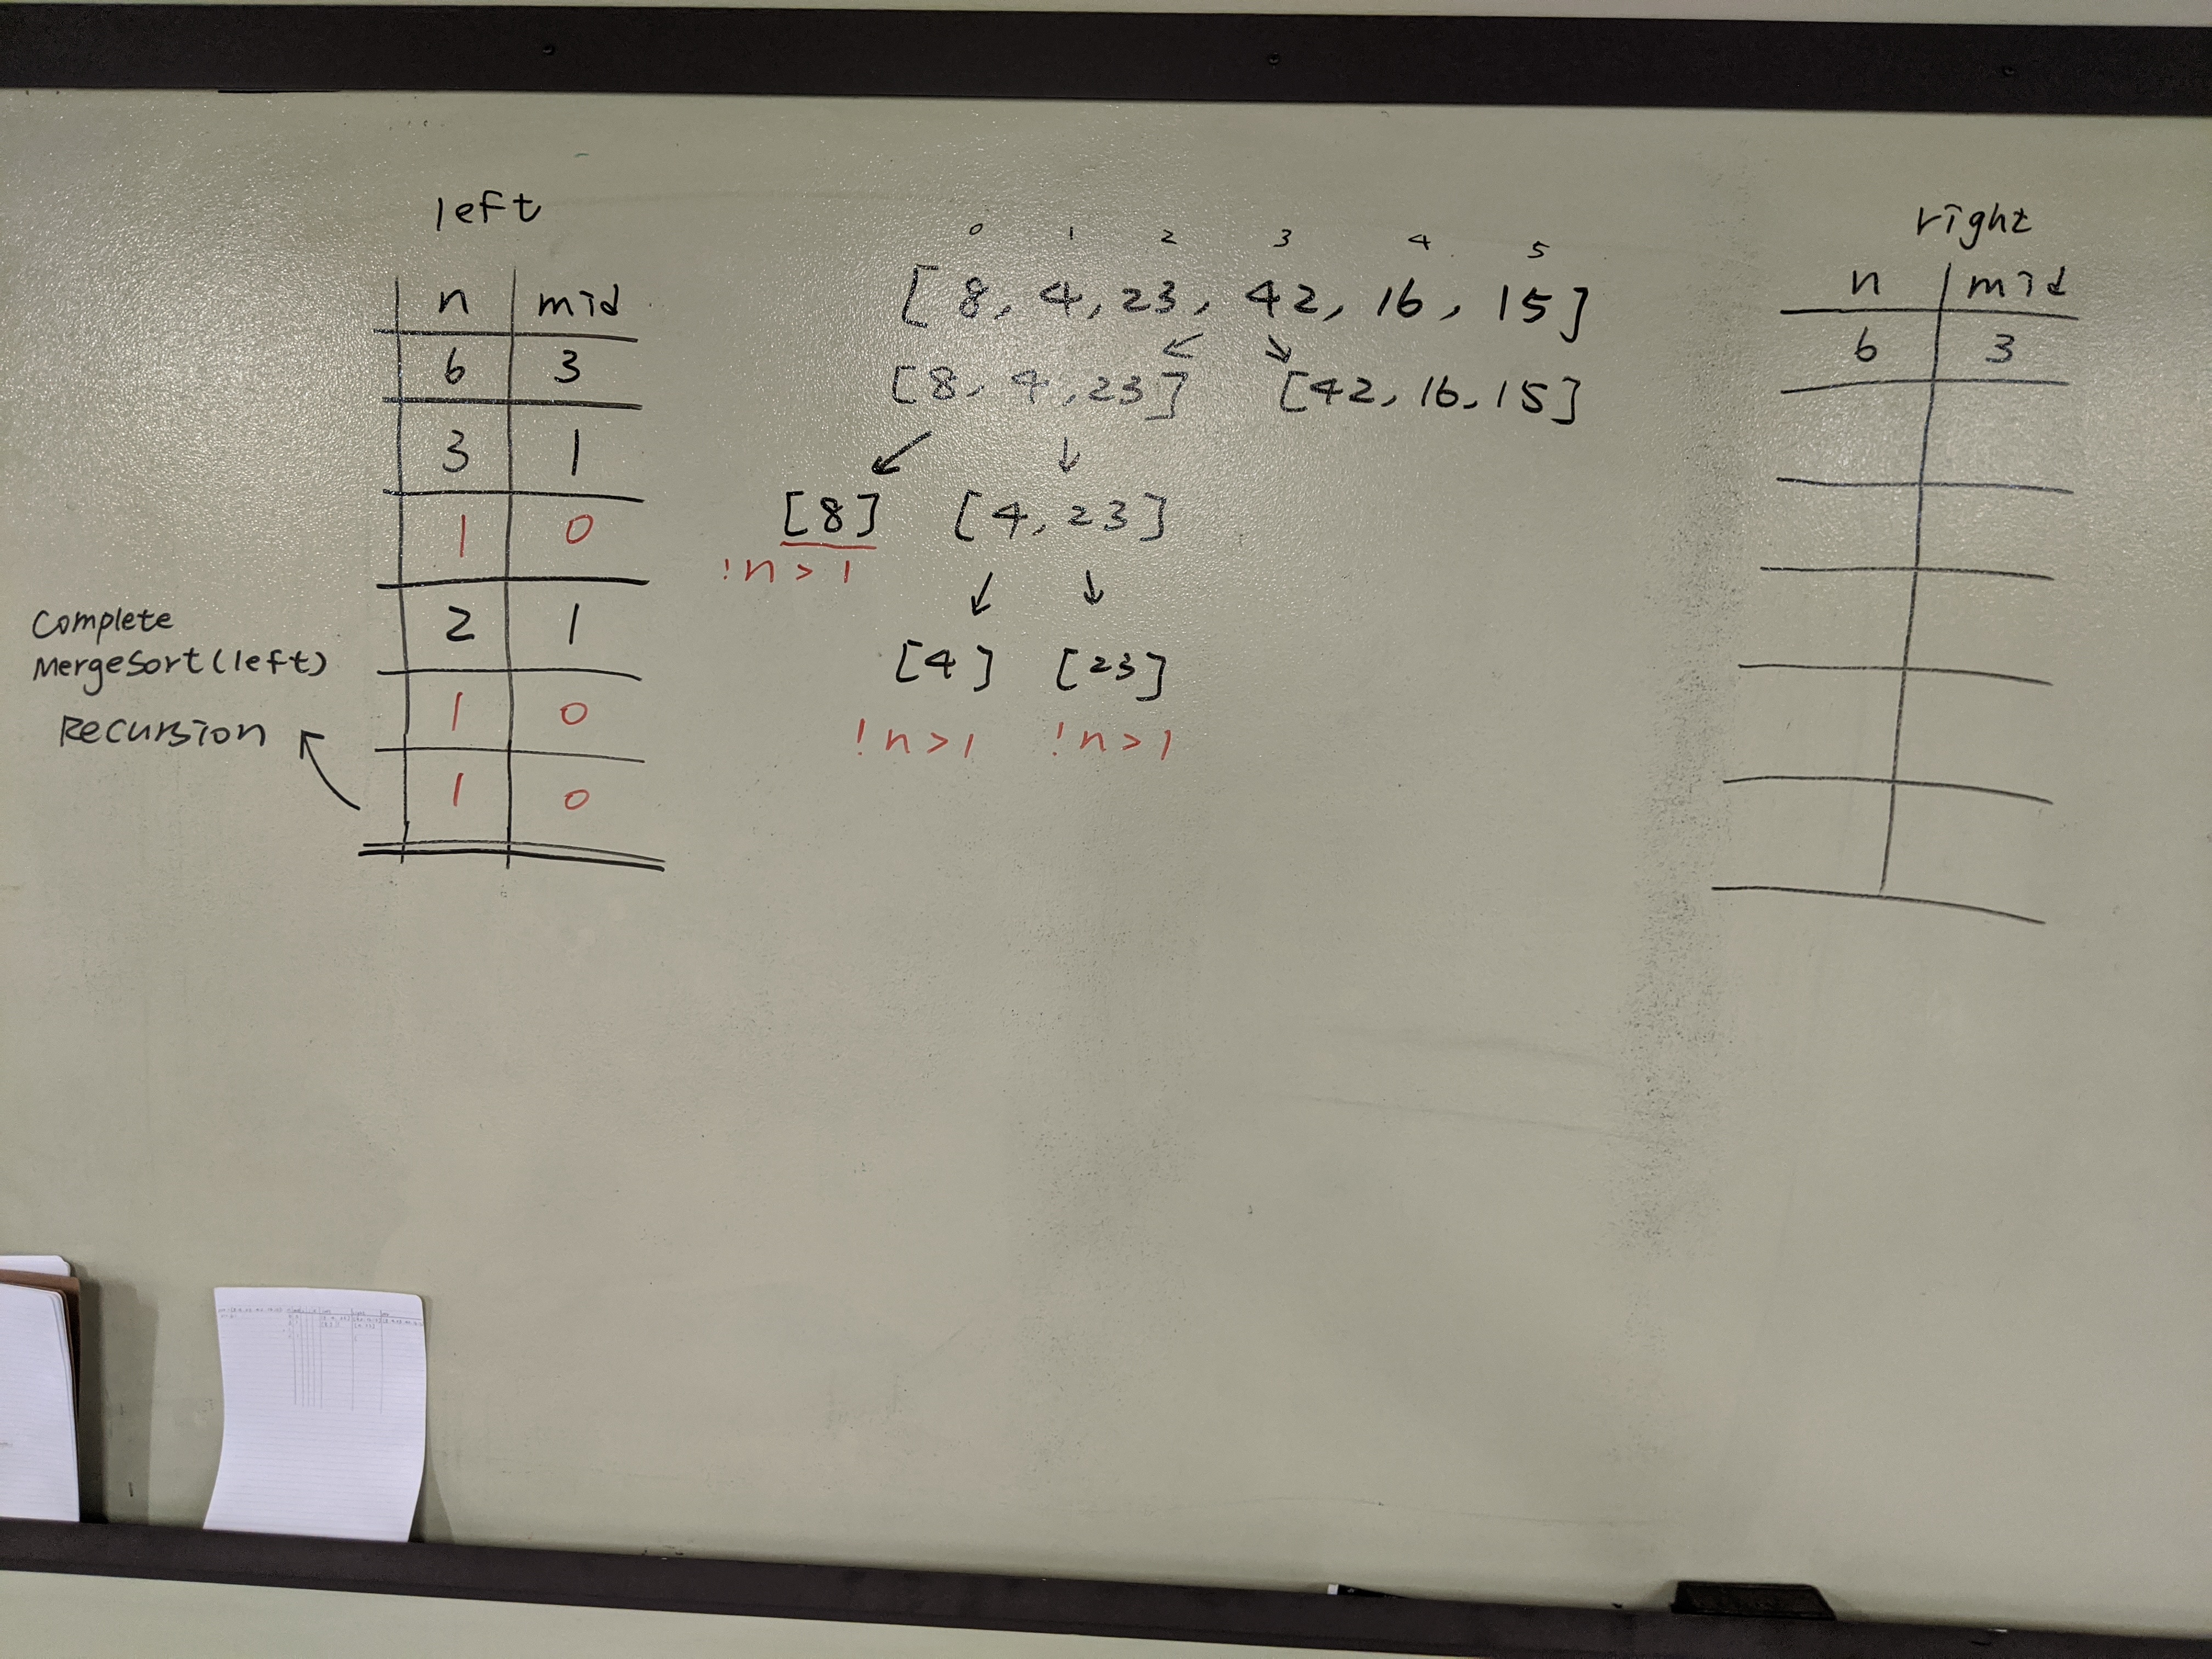 left
n mid
6 3
3 1
1 0
2 1
1 0
1 0
Complete
MergeSort(left)
Recursion
0 1 2 3 4 5
[8, 4, 23, 42, 16, 15]
[8, 4, 23] [42, 16, 15]
[8] [4, 23]
!n > 1
[4] [23]
!n > 1 !n > 1
right
n mid
6 3